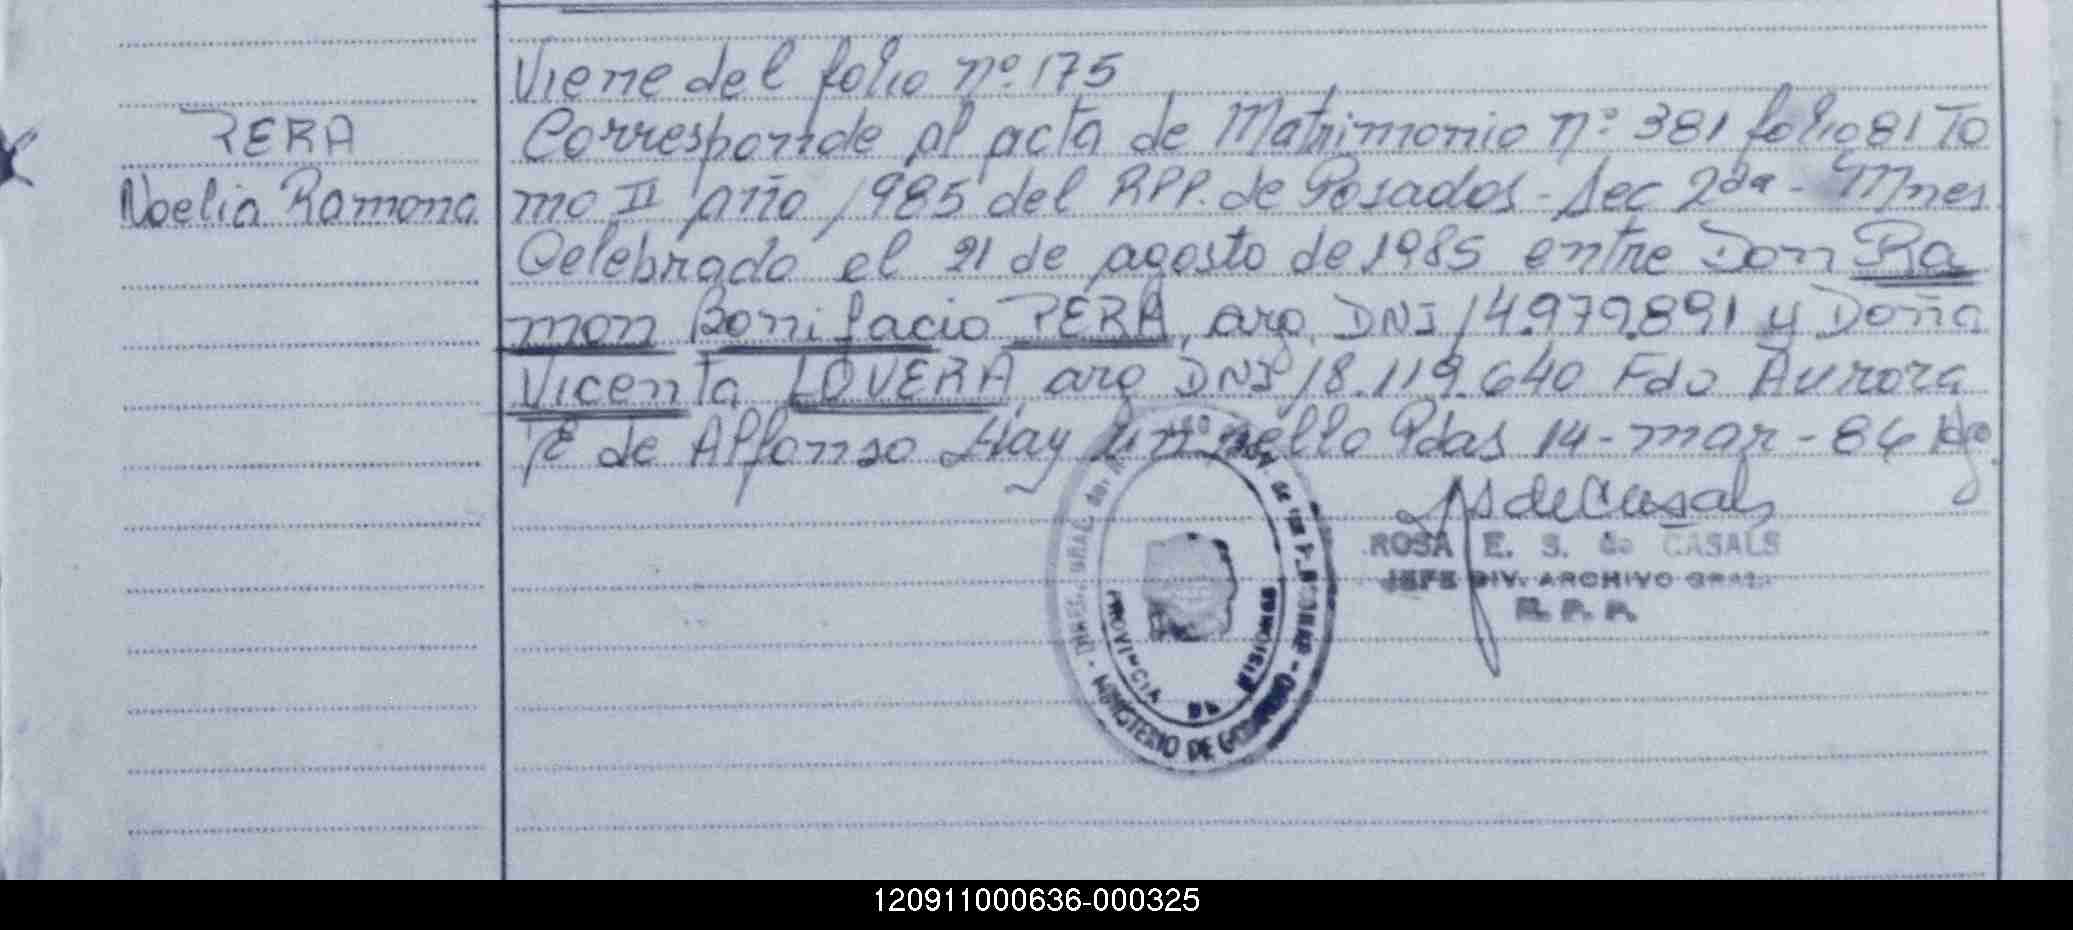 Viene del folio nº 175
PERA
Corresponde al acta de Matrimonio nº 381 folio 81 To
Noelia Ramona
mo II año 1985 del RPP. de Posadas - Sec 2da - Mnes
Celebrado el 21 de agosto de 1985 entre Don Ra
mon Bonifacio PERA, arg. DNI 14.979.891 y Doña
Vicenta LOVERA, arg DNI 18.119.640 Fdo Aurora
E de Alfonso Hay un sello Pdas 14-mar-86
S de Casals
ROSA E. S. de CASALS
JEFE DIV. ARCHIVO GRAL.
R. P. P.
PROVINCIA DE MISIONES
MINISTERIO DE GOBIERNO
120911000636-000325